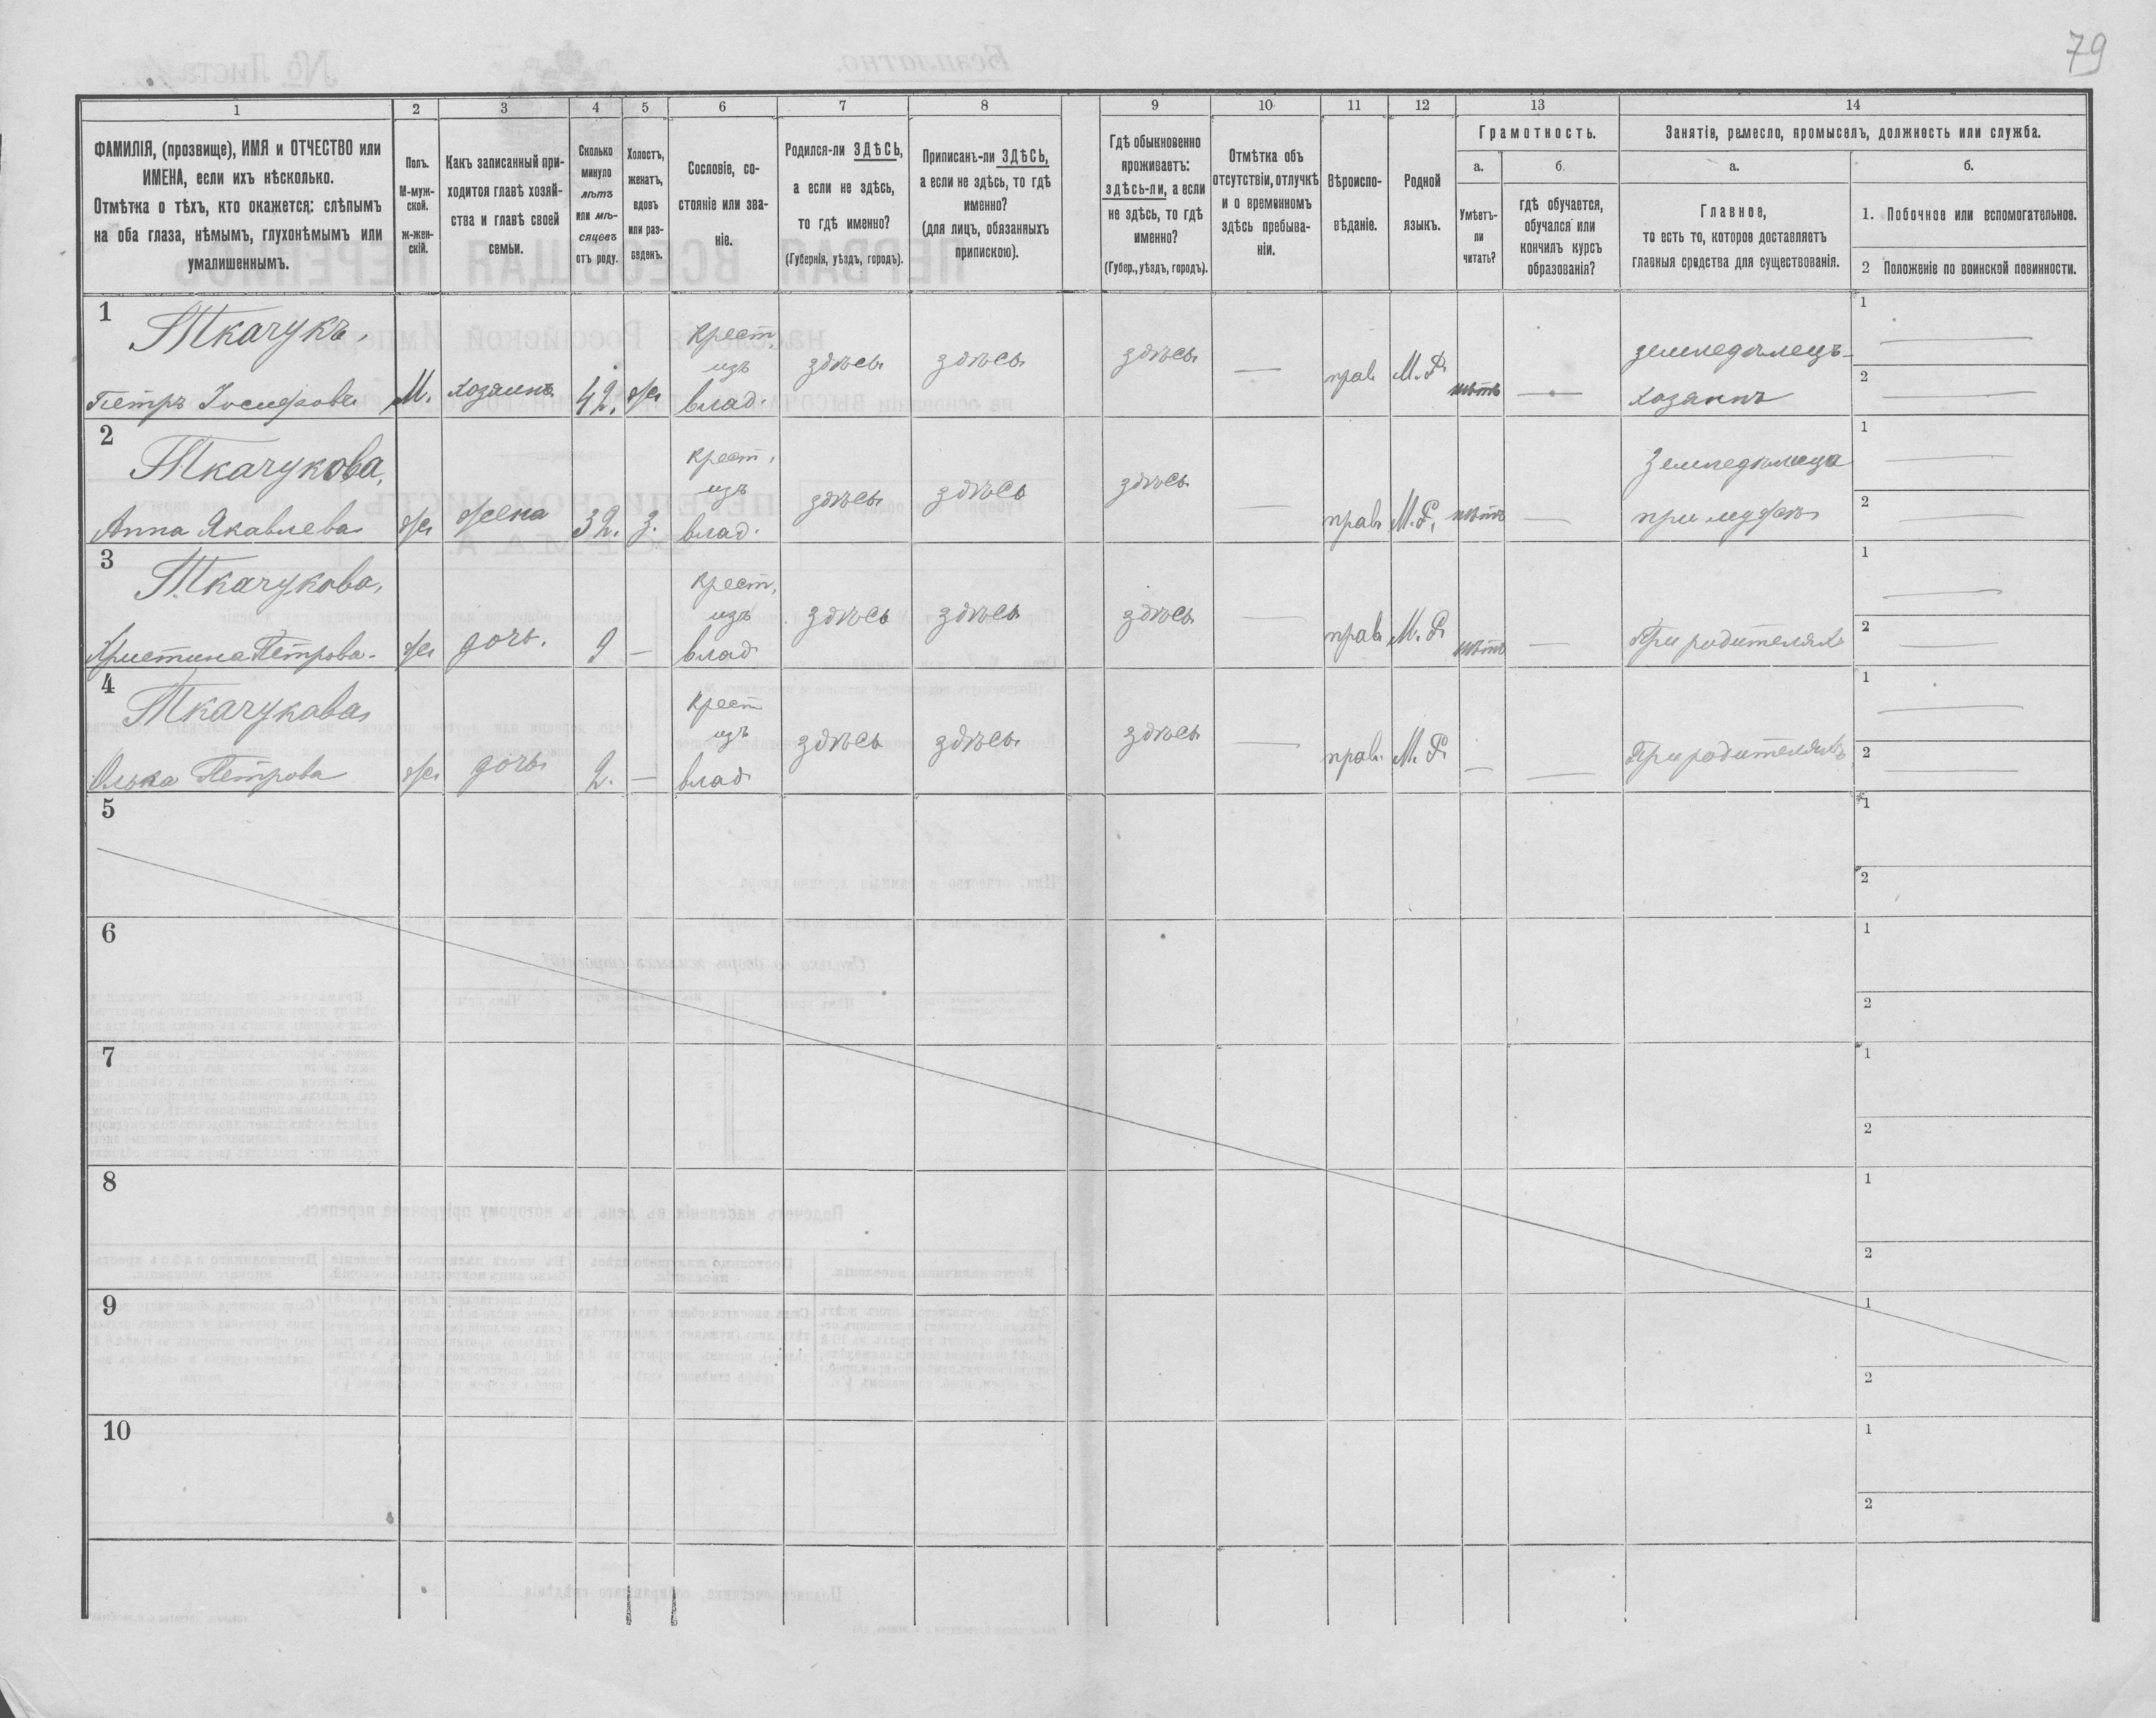 79
1 2 3 4 5 6 7 8 9 10 11 12 13 14
ФАМИЛІЯ, (прозвище), ИМЯ и ОТЧЕСТВО или
ИМЕНА, если ихъ нѣсколько.
Отмѣтка о тѣхъ, кто окажется: слѣпымъ
на оба глаза, нѣмымъ, глухонѣмымъ или
умалишеннымъ.
Полъ.
М-муж-
ской.
ж-жен-
скій.
Какъ записанный при-
ходится главѣ хозяй-
ства и главѣ своей
семьи.
Сколько
минуло
лѣтъ
или мѣ-
сяцевъ
отъ роду.
Холостъ,
женатъ,
вдовъ
или раз-
веденъ.
Сословіе, со-
стояніе или зва-
ніе.
Родился-ли ЗДѢСЬ,
а если не здѣсь,
то гдѣ именно?
(Губернія, уѣздъ, городъ).
Приписанъ-ли ЗДѢСЬ,
а если не здѣсь, то гдѣ
именно?
(для лицъ, обязанныхъ
припискою).
Гдѣ обыкновенно
проживаетъ:
здѣсь-ли, а если
не здѣсь, то гдѣ
именно?
(Губер., уѣздъ, городъ).
Отмѣтка объ
отсутствіи, отлучкѣ
и о временномъ
здѣсь пребыва-
ніи.
Вѣроиспо-
вѣданіе.
Родной
языкъ.
Грамотность.
а.
Умѣетъ-
ли
читать?
б.
гдѣ обучается,
обучался или
кончилъ курсъ
образованія?
Занятіе, ремесло, промыселъ, должность или служба.
а.
Главное,
то есть то, которое доставляетъ
главныя средства для существованія.
б.
1. Побочное или вспомогательное.
2 Положеніе по воинской повинности.
1
Ткачукъ,
Петръ Іосифовъ М. хозяинъ 42. же
Крест.
изъ
влад.
здѣсь здѣсь здѣсь — прав М.Р. нѣтъ —
земледѣлецъ
хозяинъ
1 —
2 —
2
Ткачукова,
Анна Яковлева же жена 32. з.
Крест.
изъ
влад.
здѣсь здѣсь здѣсь — прав М.Р. нѣтъ —
Земледѣлица
при мужѣ
1 —
2 —
3
Ткачукова,
Христина Петрова. же дочь. 9 —
Крест.
изъ
влад
здѣсь здѣсь здѣсь — прав М.Р. нѣтъ —
При родителяхъ
1 —
2 —
4
Ткачукова
Петрова же дочь 2. —
Крест
изъ
влад
здѣсь здѣсь здѣсь — прав. М.Р. — —
При родителяхъ
1 —
2 —
5
1
2
6
1
2
7
1
2
8
1
2
9
1
2
10
1
2